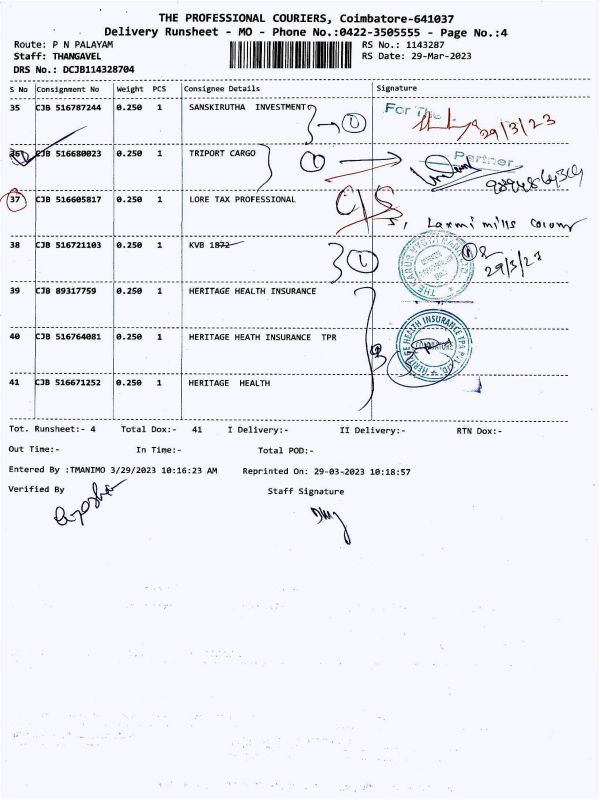 THE PROFESSIONAL COURIERS, Coimbatore-641037
Delivery Runsheet - MO - Phone No.:0422-3505555 - Page No.:4
Route: P N PALAYAM RS No.: 1143287
Staff: THANGAVEL RS Date: 29-Mar-2023
DRS No.: DCJB114328704
S No Consignment No Weight PCS Consignee Details Signature
35 CJB 516787244 0.250 1 SANSKIRUTHA INVESTMENT 1 For The
29/3/23
36 CJB 516680023 0.250 1 TRIPORT CARGO 1 Partner
37 CJB 516605817 0.250 1 LORE TAX PROFESSIONAL C/S
Laxmi mills
38 CJB 516721103 0.250 1 KVB 1872 1
29/3/23
39 CJB 89317759 0.250 1 HERITAGE HEALTH INSURANCE
40 CJB 516764081 0.250 1 HERITAGE HEATH INSURANCE TPR 3
HERITAGE HEALTH INSURANCE TPA
41 CJB 516671252 0.250 1 HERITAGE HEALTH
Tot. Runsheet:- 4 Total Dox:- 41 I Delivery:- II Delivery:- RTN Dox:-
Out Time:- In Time:- Total POD:-
Entered By :TMANIMO 3/29/2023 10:16:23 AM Reprinted On: 29-03-2023 10:18:57
Verified By Staff Signature